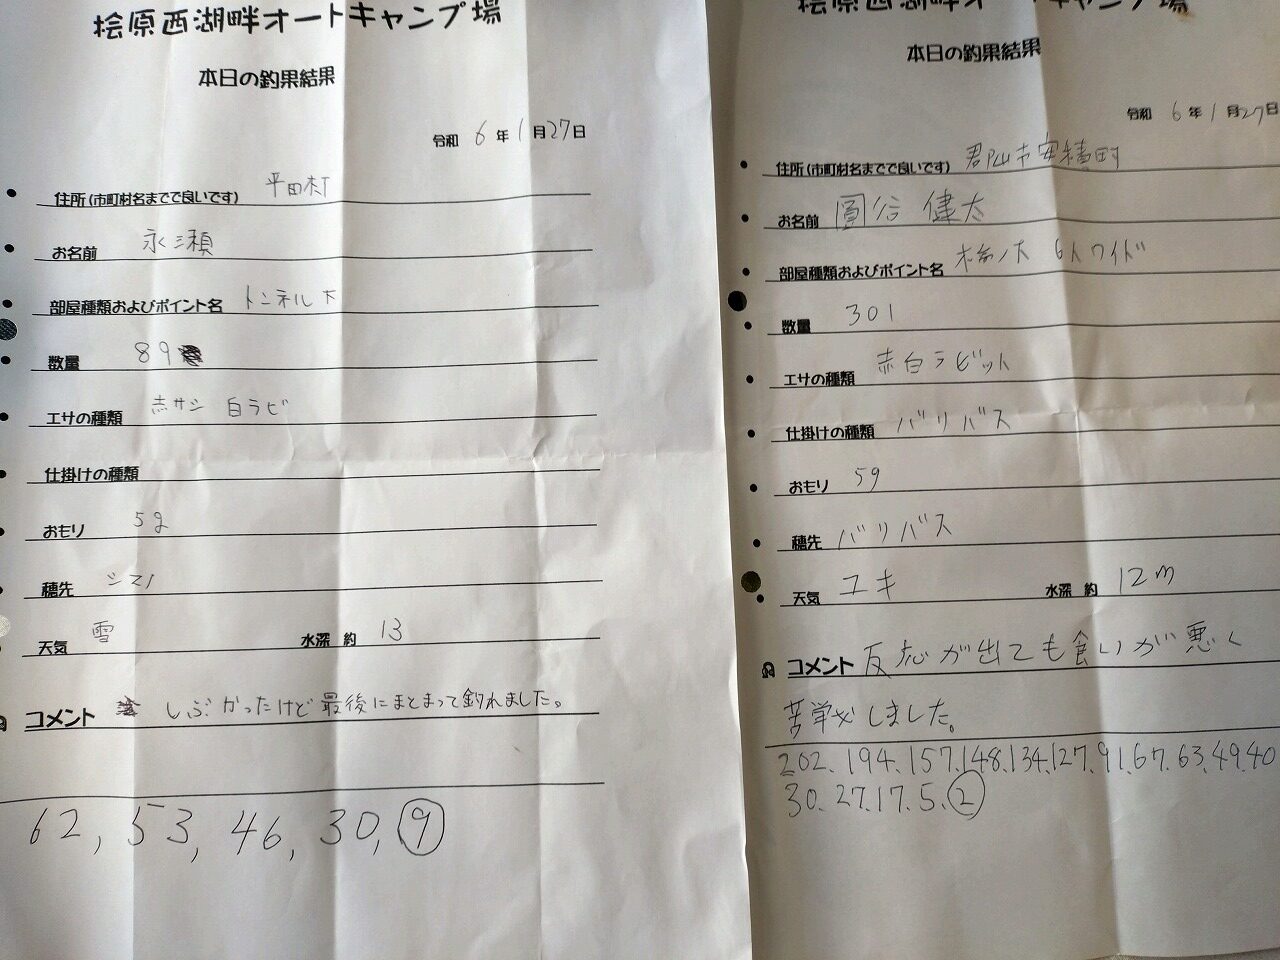 桧原西湖畔オートキャンプ場
本日の釣果結果
令和 6 年 1 月 27 日
住所(市町村名までで良いです) 平田村
お名前 永瀬
部屋種類およびポイント名 トンネル下
数量 89
エサの種類 赤サシ 白ラビ
仕掛けの種類
おもり 5g
穂先 シマノ
天気 雪 水深 約 13
コメント しぶかったけど最後にまとまって釣れました。
62, 53, 46, 30, 9
桧原西湖畔オートキャンプ場
本日の釣果結果
令和 6 年 1 月 27 日
住所(市町村名までで良いです) 郡山市安積町
お名前 圓谷 健太
部屋種類およびポイント名 6人ワイド
数量 301
エサの種類 赤白ラビット
仕掛けの種類 バリバス
おもり 5g
穂先 バリバス
天気 ユキ 水深 約 12m
コメント 反応が出ても食いが悪く
苦労しました。
202.194.157.148.134.127.91.67.63.49.40
30.27.17.5.2